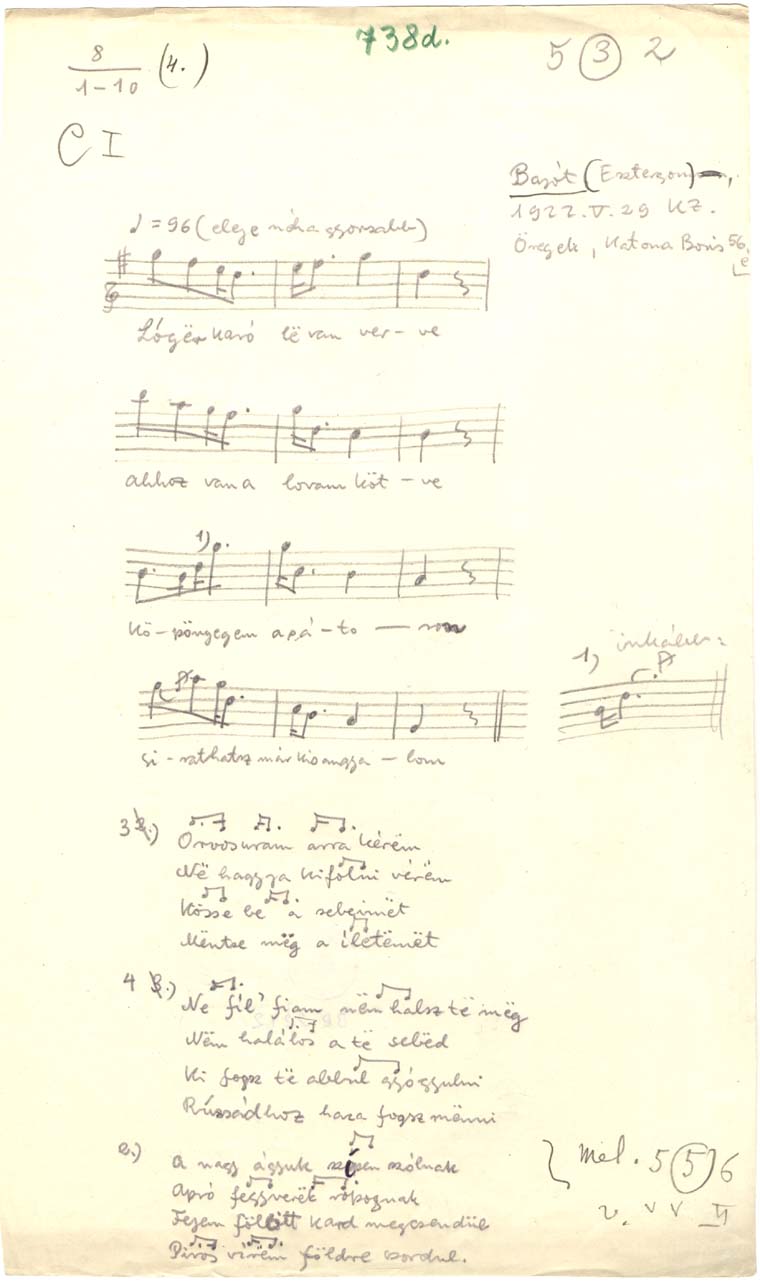 738d.
8
1-10 (4.)
5 3 2
C I
Bajót (Esztergom),
1922.V.29 KZ.
Öregek, Katona Boris 56 é
♩=96 (eleje néha gyorsabb)
Lógër karó lë van ver-ve
ahhoz van a lovam köt-ve
1)
Kö-pönyegem a pá-to — mon
1) inkább:
si-rathatsz már kis angya-lom
3 2.) Orvos uram arra kérëm
Në haggya kifolni vérëm
Kösse be a sebeimët
Mëntse mëg a íletëmët
4 3.) Ne fíl' fiam nëm halsz të mëg
Nëm halálos a të sebëd
Ki fogsz të abbúl gyóggyulni
Rúzsádhoz haza fogsz mënni
2.) A nagy ágyuk szípen szólnak
Apró fegyverëk ropognak
Fejem föllött kard megcsendül
Piros vírëm földre csordul.
Mel. 5 5 6
v. v v II